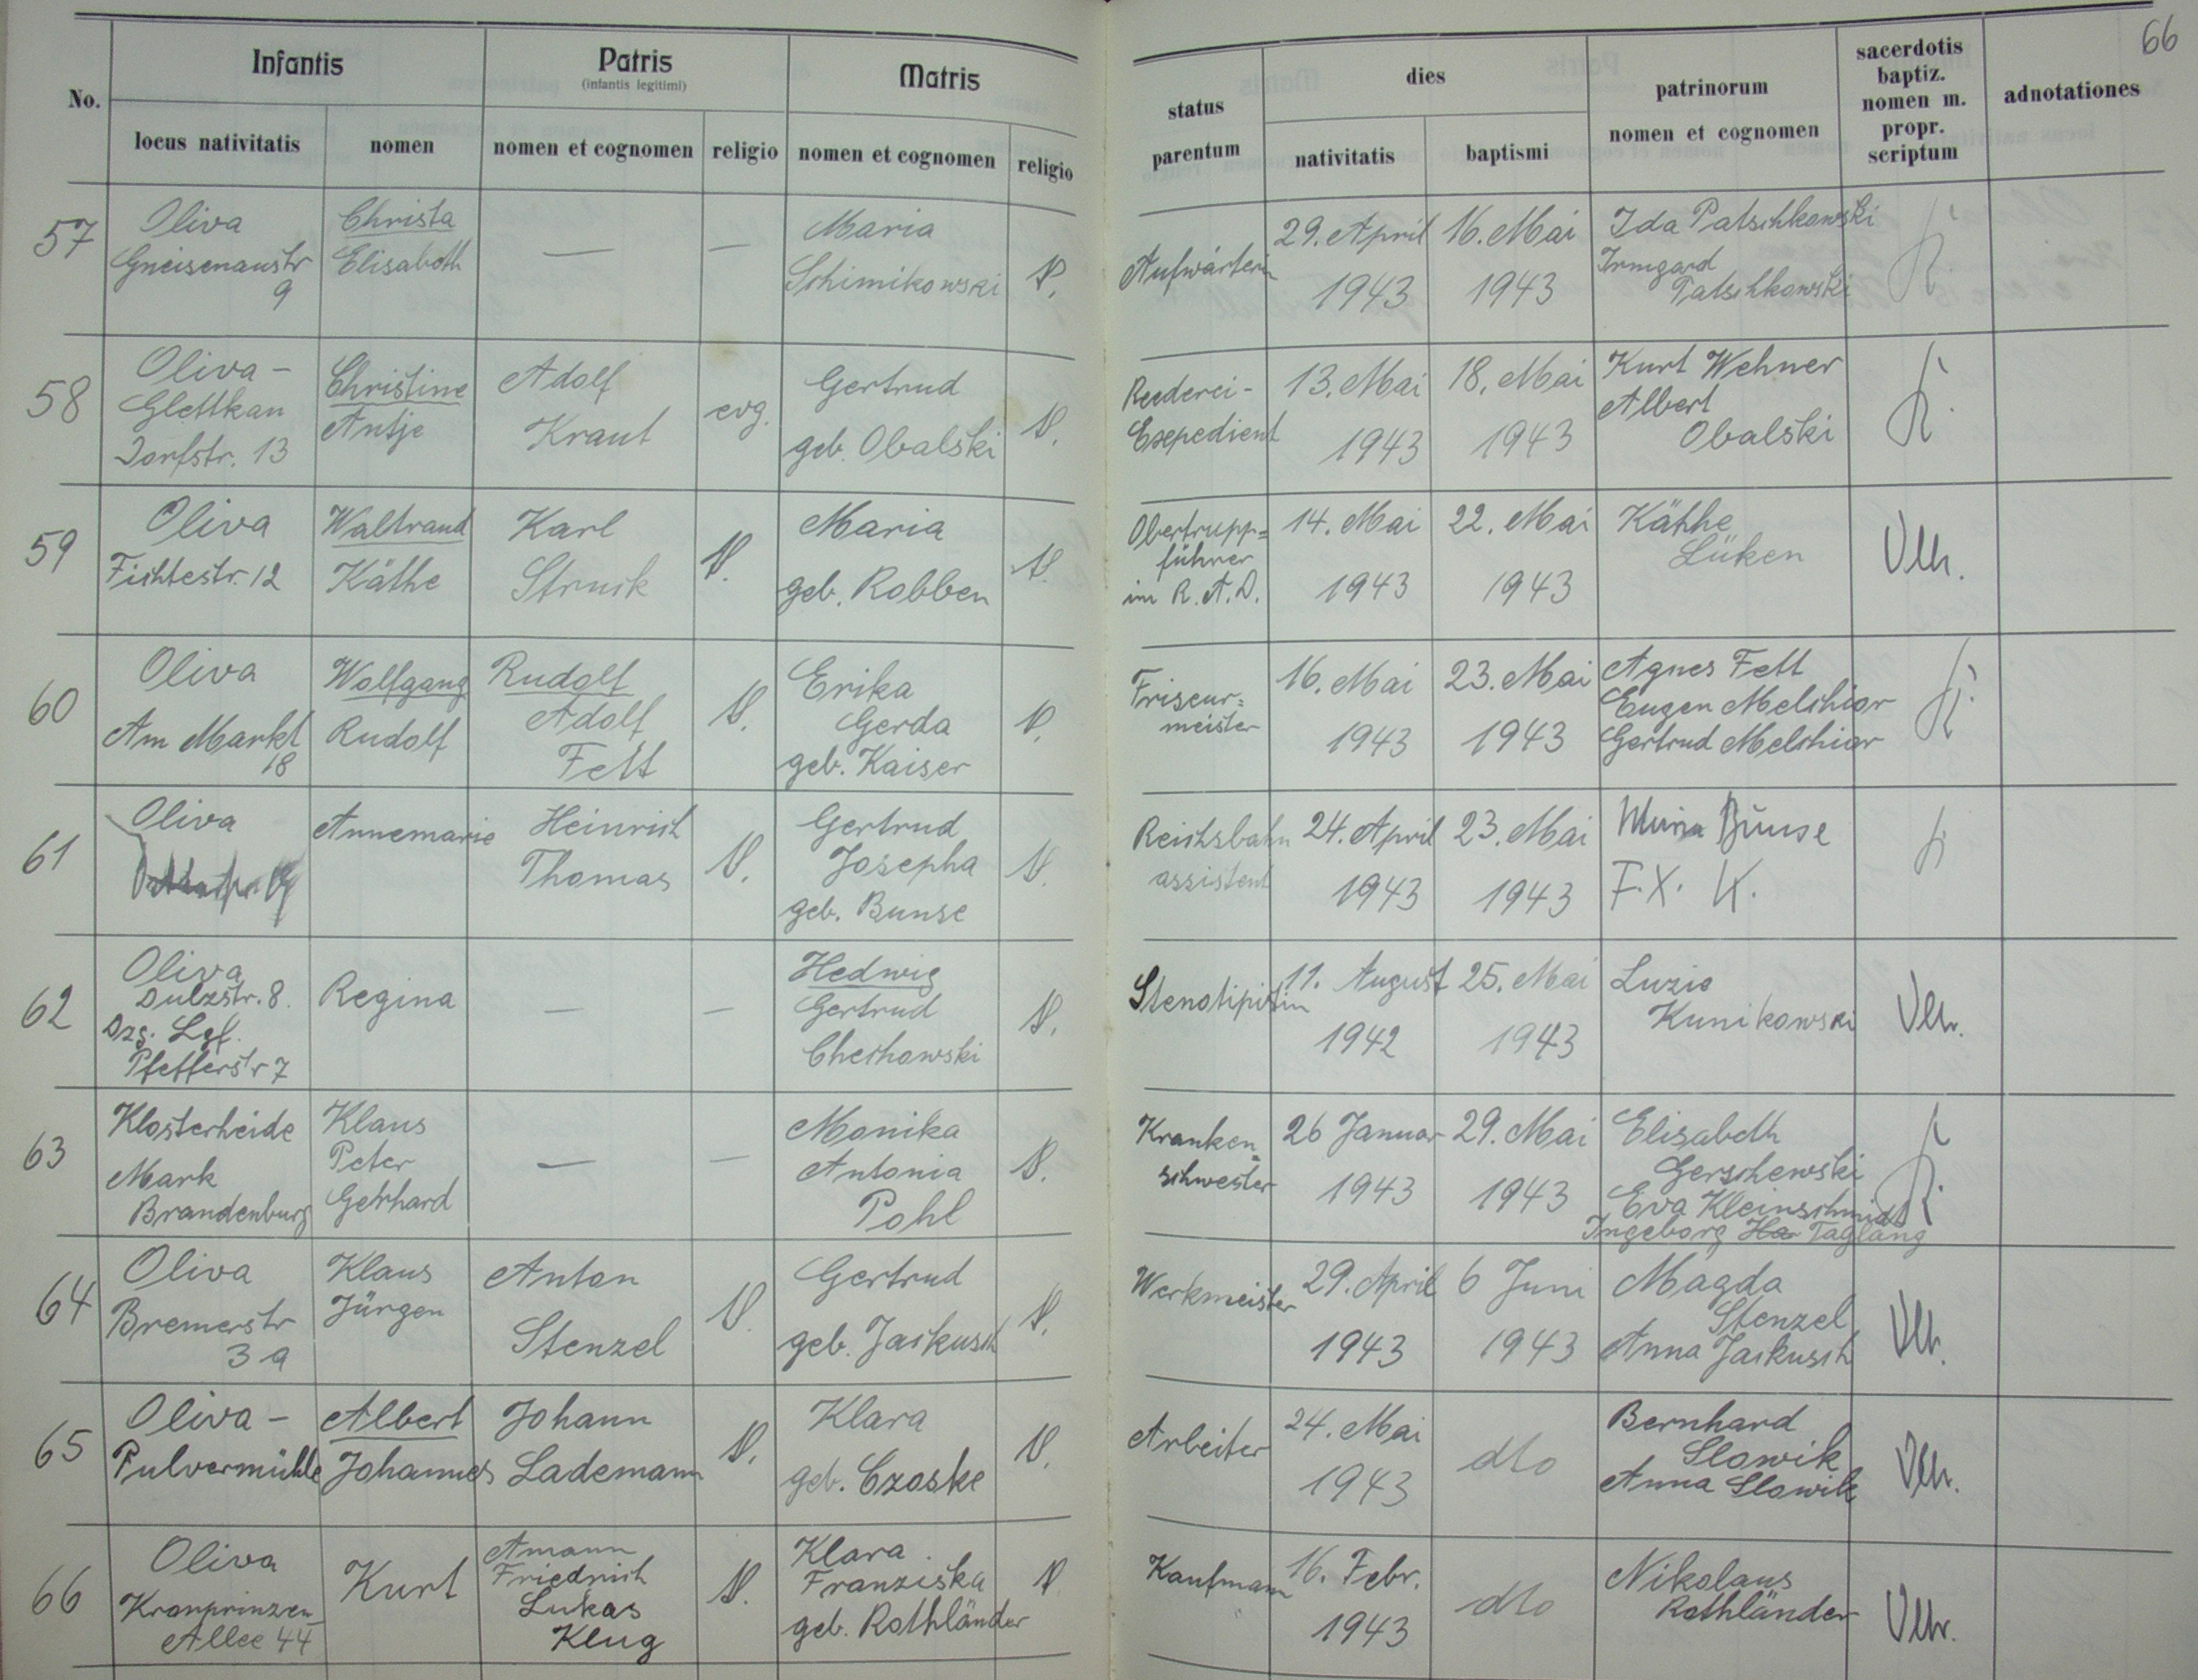 66
No.
Infantis
Patris
(infantis legitimi)
Matris
status parentum
dies
patrinorum nomen et cognomen
sacerdotis baptiz. nomen m. propr. scriptum
adnotationes
locus nativitatis
nomen
nomen et cognomen
religio
nomen et cognomen
religio
nativitatis
baptismi
57
Oliva
Gneisenaustr
9
Christa
Elisabeth
—
—
Maria
Schimikowski
Aufwärterin
29. April
1943
16. Mai
1943
Ida Patschkowski
Irmgard
Patschkowski
58
Oliva -
Glettkau
Dorfstr. 13
Christine
Antje
Adolf
Kraut
evg.
Gertrud
geb. Obalski
Reederei-
Expedient
13. Mai
1943
18. Mai
1943
Kurt Wehner
Albert
Obalski
59
Oliva
Fichtestr. 12
Waltraud
Käthe
Karl
Struck
Maria
geb. Robben
Obertrupp=
führer
im R.A.D.
14. Mai
1943
22. Mai
1943
Käthe
Lüken
60
Oliva
Am Markt
18
Wolfgang
Rudolf
Rudolf
Adolf
Fett
Erika
Gerda
geb. Kaiser
Friseur=
meister
16. Mai
1943
23. Mai
1943
Agnes Fett
Eugen Melchior
Gertrud Melchior
61
Oliva
Annemarie
Heinrich
Thomas
Gertrud
Josepha
geb. Bunse
Reichsbahn
assistent
24. April
1943
23. Mai
1943
Maria Bunse
F. X. K.
62
Oliva
Dulzstr. 8.
Dzg. Lgf.
Pfefferstr 7
Regina
—
—
Hedwig
Gertrud
Chechowski
Stenotipistin
11. August
1942
25. Mai
1943
Luzie
Kunikowski
63
Klosterheide
Mark
Brandenburg
Klaus
Peter
Gerhard
—
—
Monika
Antonia
Pohl
Kranken=
schwester
26 Januar
1943
29. Mai
1943
Elisabeth
Gerschewski
Eva Kleinschmidt
Ingeborg Ha Taglang
64
Oliva
Bremerstr
3 a
Klaus
Jürgen
Anton
Stenzel
Gertrud
geb. Jaikusch
Werkmeister
29. April
1943
6 Juni
1943
Magda
Stenzel
Anna Jaikusch
65
Oliva -
Pulvermühle
Albert
Johannes
Johann
Lademann
Klara
geb. Czoske
Arbeiter
24. Mai
1943
dto
Bernhard
Slowik
Anna Slowik
66
Oliva
Kronprinzen-
Allee 44
Kurt
Amann
Friedrich
Lukas
Klug
Klara
Franziska
geb. Rothländer
Kaufmann
16. Febr.
1943
dto
Nikolaus
Rothländer